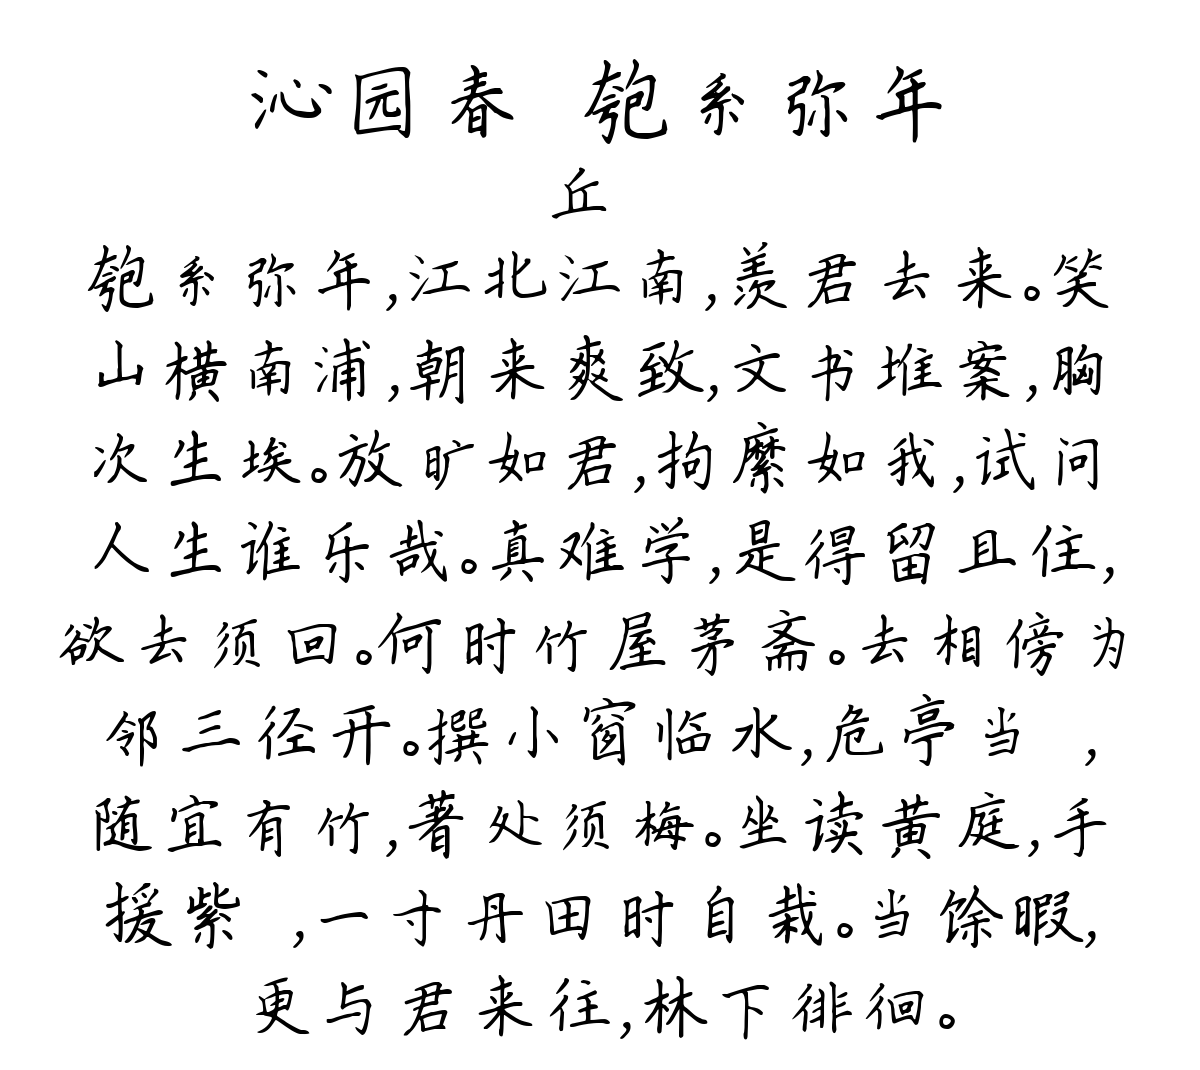 沁园春 匏系弥年
丘
匏系弥年,江北江南,羡君去来。笑
山横南浦,朝来爽致,文书堆案,胸
次生埃。放旷如君,拘縻如我,试问
人生谁乐哉。真难学,是得留且住,
欲去须回。何时竹屋茅斋。去相傍为
邻三径开。撰小窗临水,危亭当 ,
随宜有竹,著处须梅。坐读黄庭,手
援紫 ,一寸丹田时自栽。当馀暇,
更与君来往,林下徘徊。